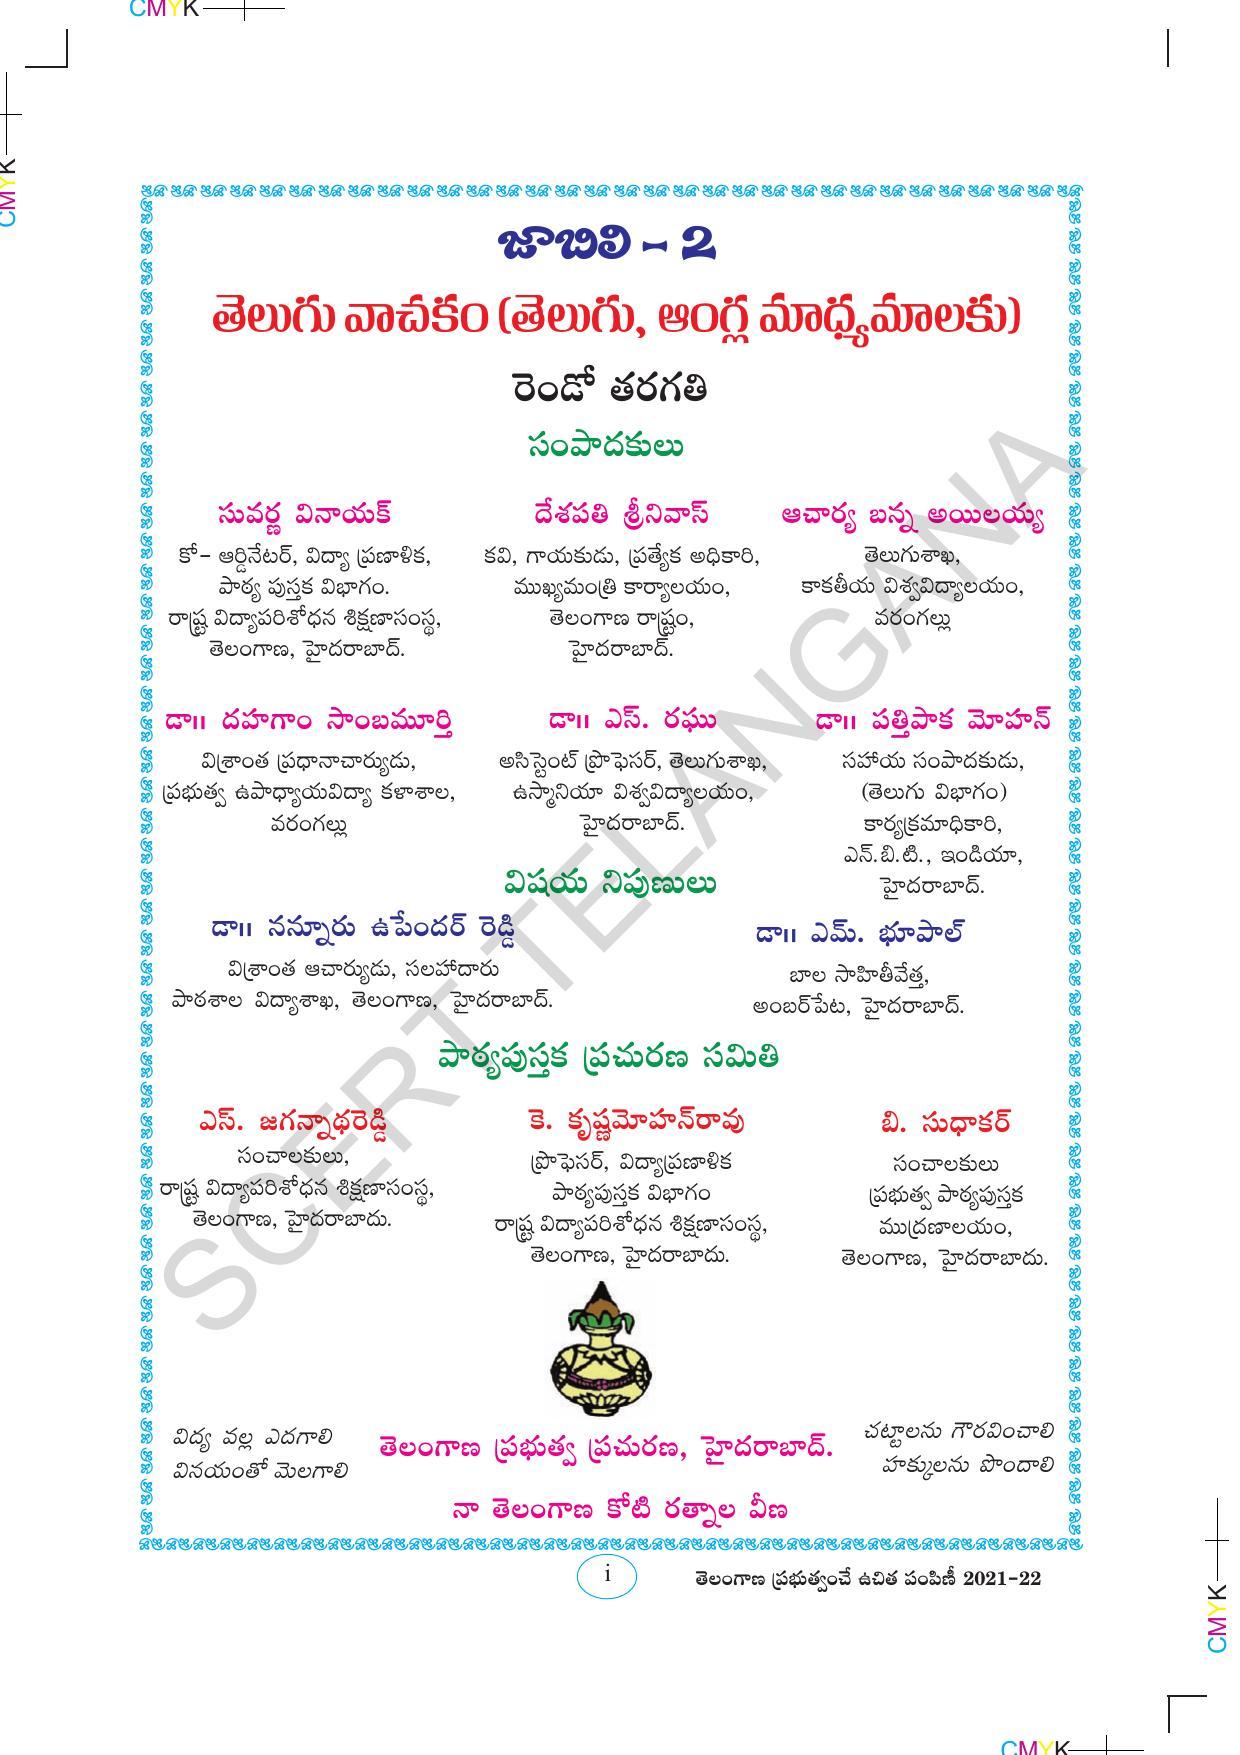 CMYK
CMYK
జాబిలి - 2
తెలుగు వాచకం (తెలుగు, ఆంగ్ల మాధ్యమాలకు)
రెండో తరగతి
సంపాదకులు
సువర్ణ వినాయక్
కో- ఆర్డినేటర్, విద్యా ప్రణాళిక,
పాఠ్య పుస్తక విభాగం.
రాష్ట్ర విద్యాపరిశోధన శిక్షణాసంస్థ,
తెలంగాణ, హైదరాబాద్.
దేశపతి శ్రీనివాస్
కవి, గాయకుడు, ప్రత్యేక అధికారి,
ముఖ్యమంత్రి కార్యాలయం,
తెలంగాణ రాష్ట్రం,
హైదరాబాద్.
ఆచార్య బన్న అయిలయ్య
తెలుగుశాఖ,
కాకతీయ విశ్వవిద్యాలయం,
వరంగల్లు
డా॥ దహగాం సాంబమూర్తి
విశ్రాంత ప్రధానాచార్యుడు,
ప్రభుత్వ ఉపాధ్యాయవిద్యా కళాశాల,
వరంగల్లు
డా॥ ఎస్. రఘు
అసిస్టెంట్ ప్రొఫెసర్, తెలుగుశాఖ,
ఉస్మానియా విశ్వవిద్యాలయం,
హైదరాబాద్.
డా॥ పత్తిపాక మోహన్
సహాయ సంపాదకుడు,
(తెలుగు విభాగం)
కార్యక్రమాధికారి,
ఎన్.బి.టి., ఇండియా,
హైదరాబాద్.
విషయ నిపుణులు
డా॥ నన్నూరు ఉపేందర్ రెడ్డి
విశ్రాంత ఆచార్యుడు, సలహాదారు
పాఠశాల విద్యాశాఖ, తెలంగాణ, హైదరాబాద్.
డా॥ ఎమ్. భూపాల్
బాల సాహితీవేత్త,
అంబర్‌పేట, హైదరాబాద్.
పాఠ్యపుస్తక ప్రచురణ సమితి
ఎస్. జగన్నాథరెడ్డి
సంచాలకులు,
రాష్ట్ర విద్యాపరిశోధన శిక్షణాసంస్థ,
తెలంగాణ, హైదరాబాదు.
కె. కృష్ణమోహన్‌రావు
ప్రొఫెసర్, విద్యాప్రణాళిక
పాఠ్యపుస్తక విభాగం
రాష్ట్ర విద్యాపరిశోధన శిక్షణాసంస్థ,
తెలంగాణ, హైదరాబాదు.
బి. సుధాకర్
సంచాలకులు
ప్రభుత్వ పాఠ్యపుస్తక
ముద్రణాలయం,
తెలంగాణ, హైదరాబాదు.
SCERT TELANGANA
విద్య వల్ల ఎదగాలి
వినయంతో మెలగాలి
తెలంగాణ ప్రభుత్వ ప్రచురణ, హైదరాబాద్.
చట్టాలను గౌరవించాలి
హక్కులను పొందాలి
నా తెలంగాణ కోటి రత్నాల వీణ
i
తెలంగాణ ప్రభుత్వంచే ఉచిత పంపిణీ 2021-22
CMYK
CMYK